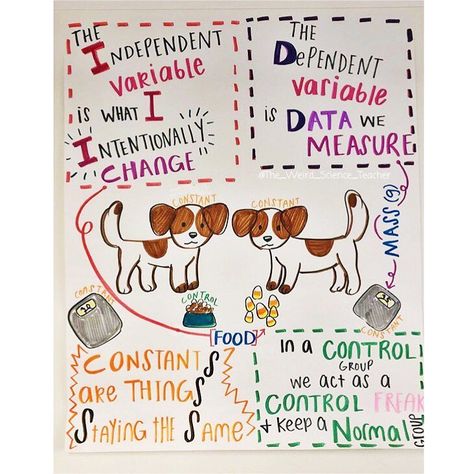 THE
INDEPENDENT
VARIABLE
is WHAT I
INTENTIONALLY
CHANGE
THE
DEPENDENT
VARIABLE
is DATA WE
MEASURE
@The_Weird_Science_Teacher
CONSTANT
CONSTANT
MASS (g)
CONSTANT
CONTROL
CONSTANT
[FOOD]
CONSTANTS
ARE THINGS
STAYING THE SAME
in A CONTROL
GROUP
WE ACT AS A
CONTROL FREAK
+ KEEP A NORMAL
GROUP